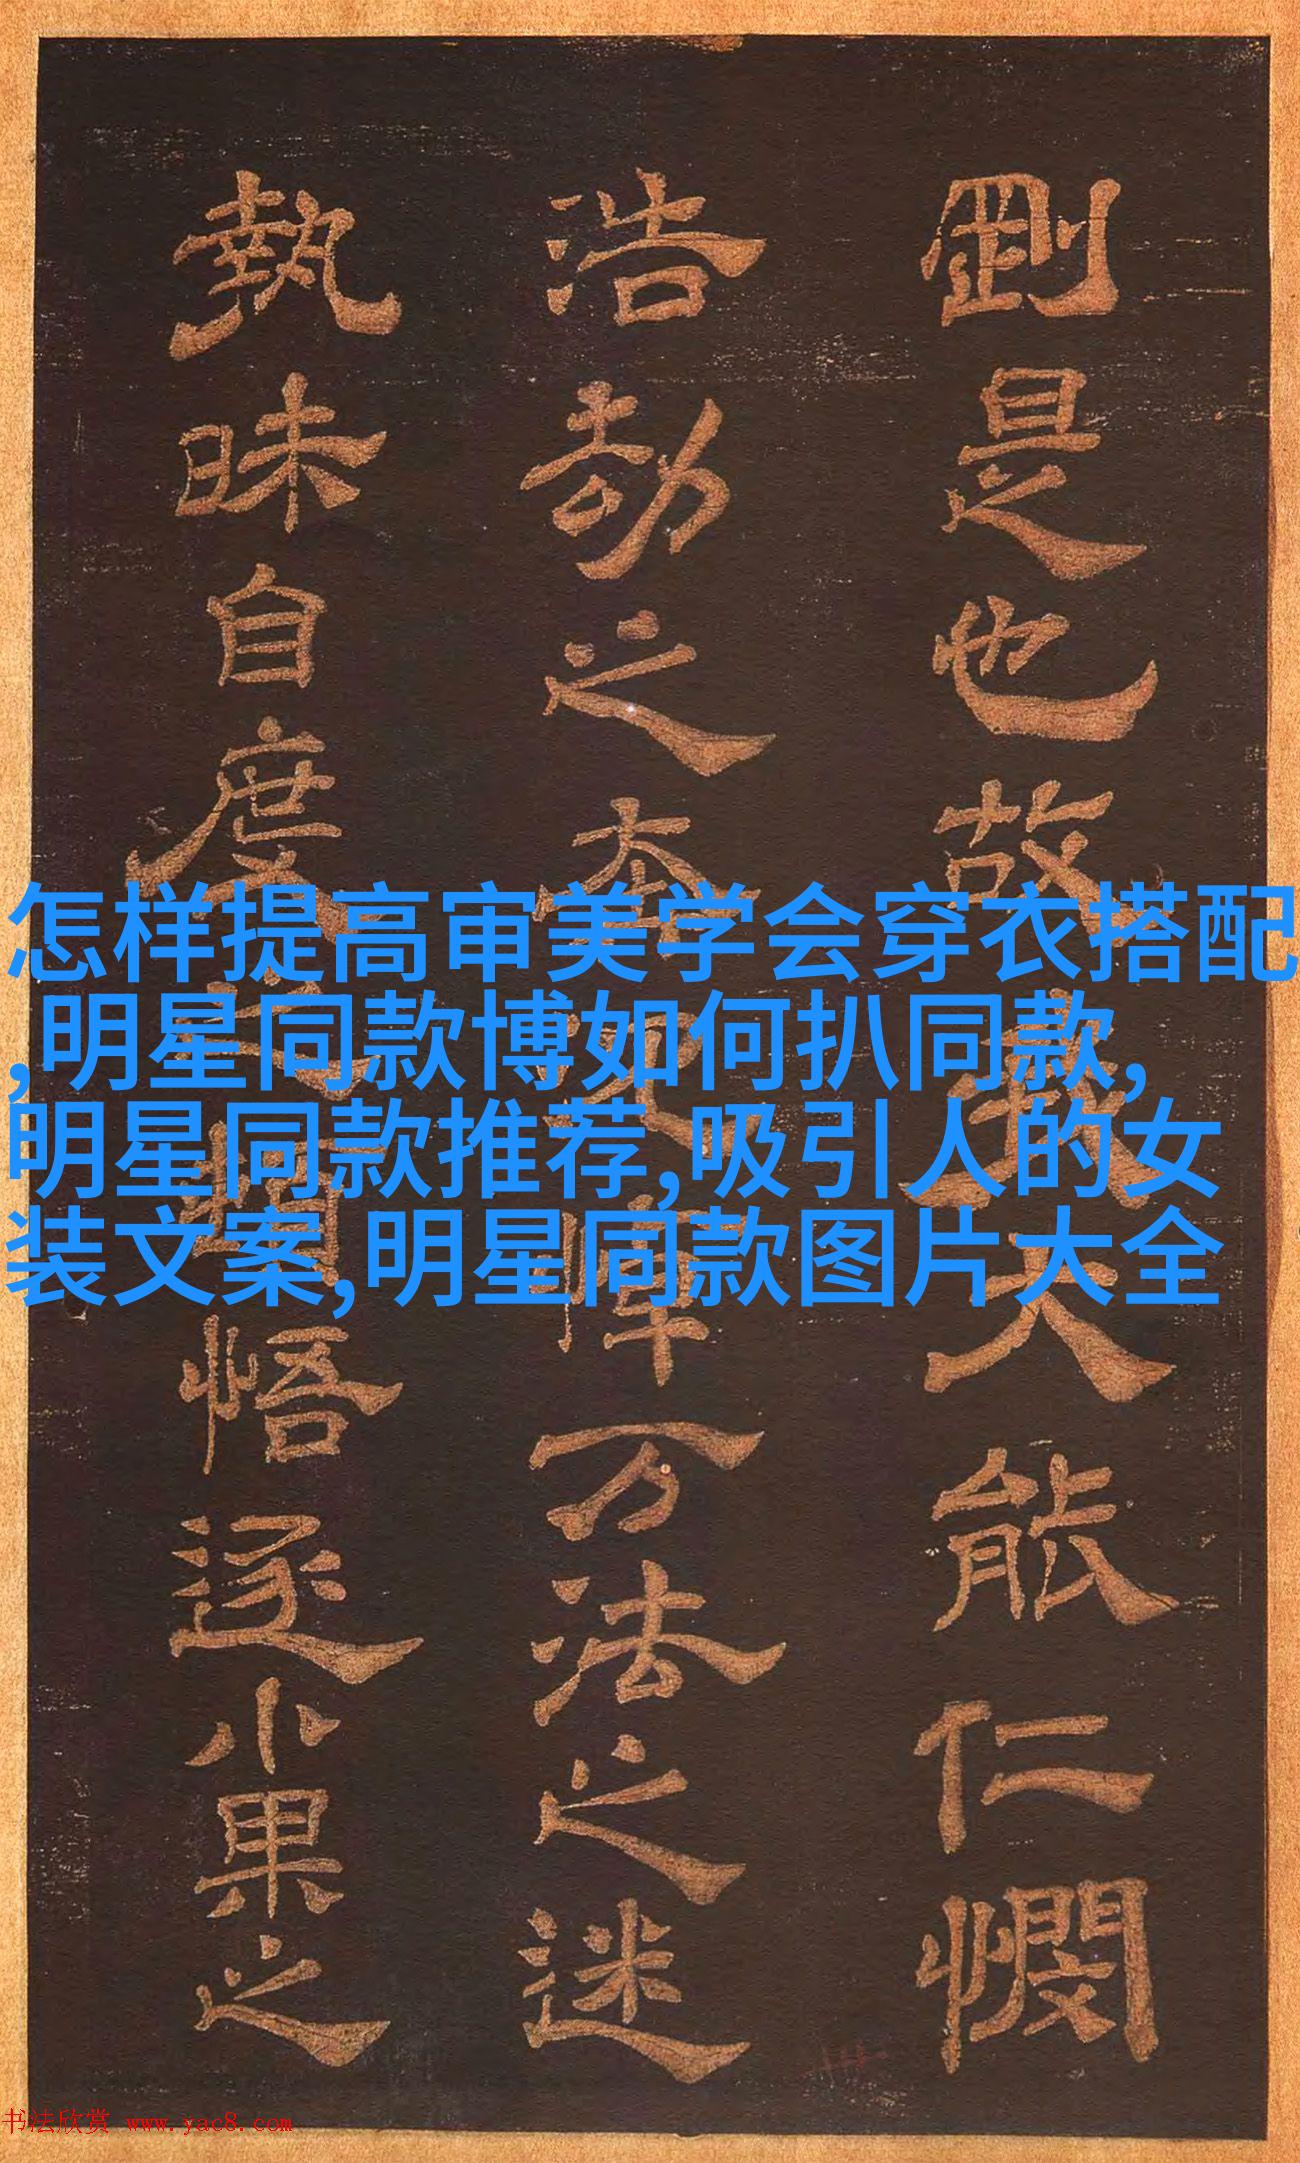 剛是也故我大能仁憫
浩劫之悼万法之迷
執昧自度悟逐小果之
怎样提高审美学会穿衣搭配
,明星同款博如何扒同款,
明星同款推荐,吸引人的女
装文案,明星同款图片大全
书法欣赏 www.yac8.com